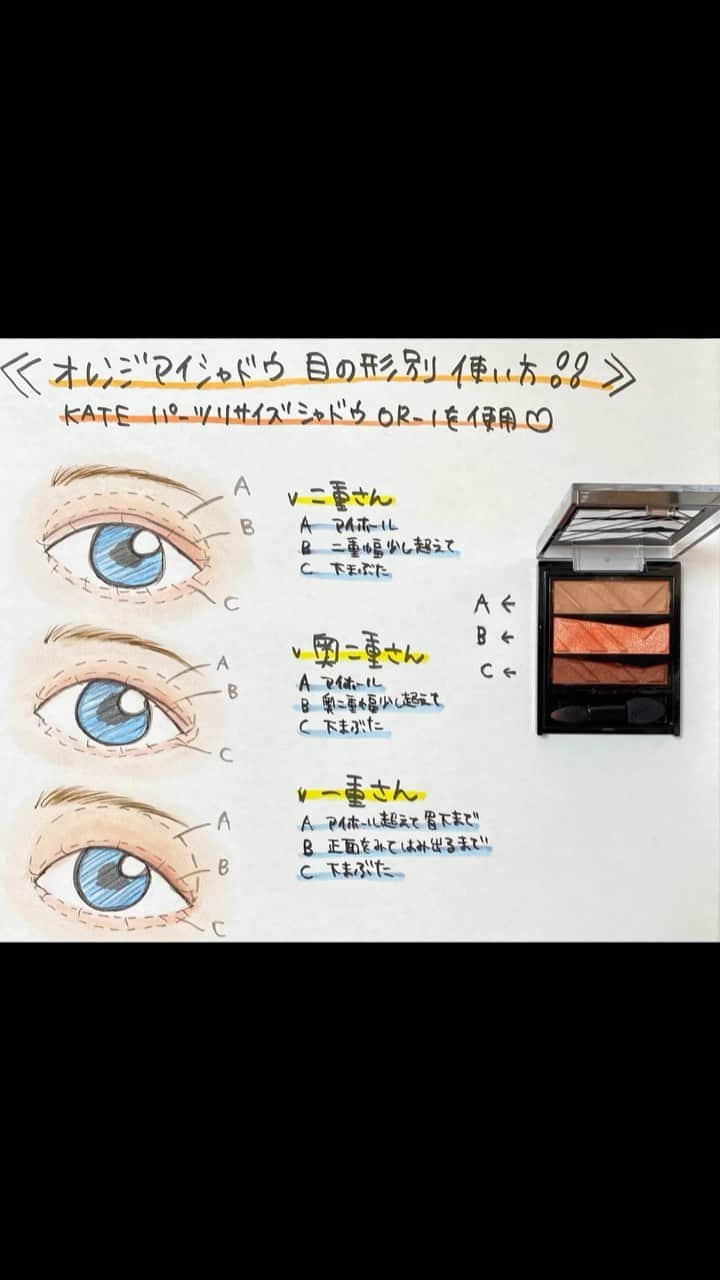 ≪オレンジアイシャドウ 目の形別 使い方!!≫
KATE パーツリサイズシャドウ OR-1を使用♡
A
B
C
v 二重さん
A アイホール
B 二重幅少し超えて
C 下まぶた
A ←
B ←
C ←
A
B
C
v 奥二重さん
A アイホール
B 奥二重幅少し超えて
C 下まぶた
A
B
C
v 一重さん
A アイホール超えて眉下まで
B 正面をみてはみ出るまで
C 下まぶた